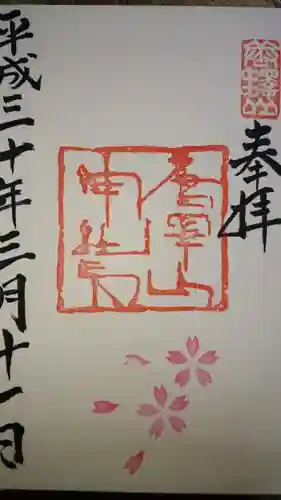 奉拝
唐澤山
神社
平成三十年三月十一日